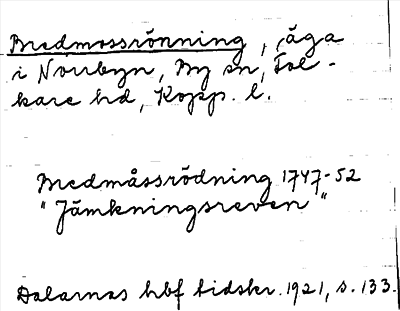 Bredmossrönning, äga
i Norrbyn, By sn, Fol-
kare hd, Kopp. l.
Bredmåssrödning 1747-52
"Jämkningsreven"
Dalarnas hbf tidskr. 1921, s. 133.